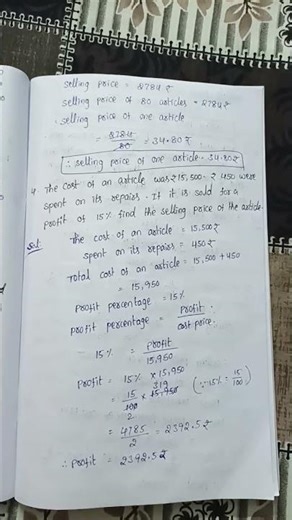 selling price = 2784 ₹
selling price of 80 articles = 2784 ₹
∴ selling price of one article
= 2784/80 = 34.80 ₹
∴ selling price of one article = 34.80 ₹
4. The cost of an article was ₹ 15,500. ₹ 450 were
spent on its repairs. If it is sold for a
profit of 15% find the selling price of the article.
Sol The cost of an article = 15,500 ₹
spent on its repairs = 450 ₹
Total cost of an article = 15,500 + 450
= 15,950
Profit percentage = 15%
profit percentage = profit/cost price
15% = profit/15,950
Profit = 15% × 15,950
= 15/100 × 15,950 (∵ 15% = 15/100)
319
2
= 4785/2 = 2392.5 ₹
∴ Profit = 2392.5 ₹